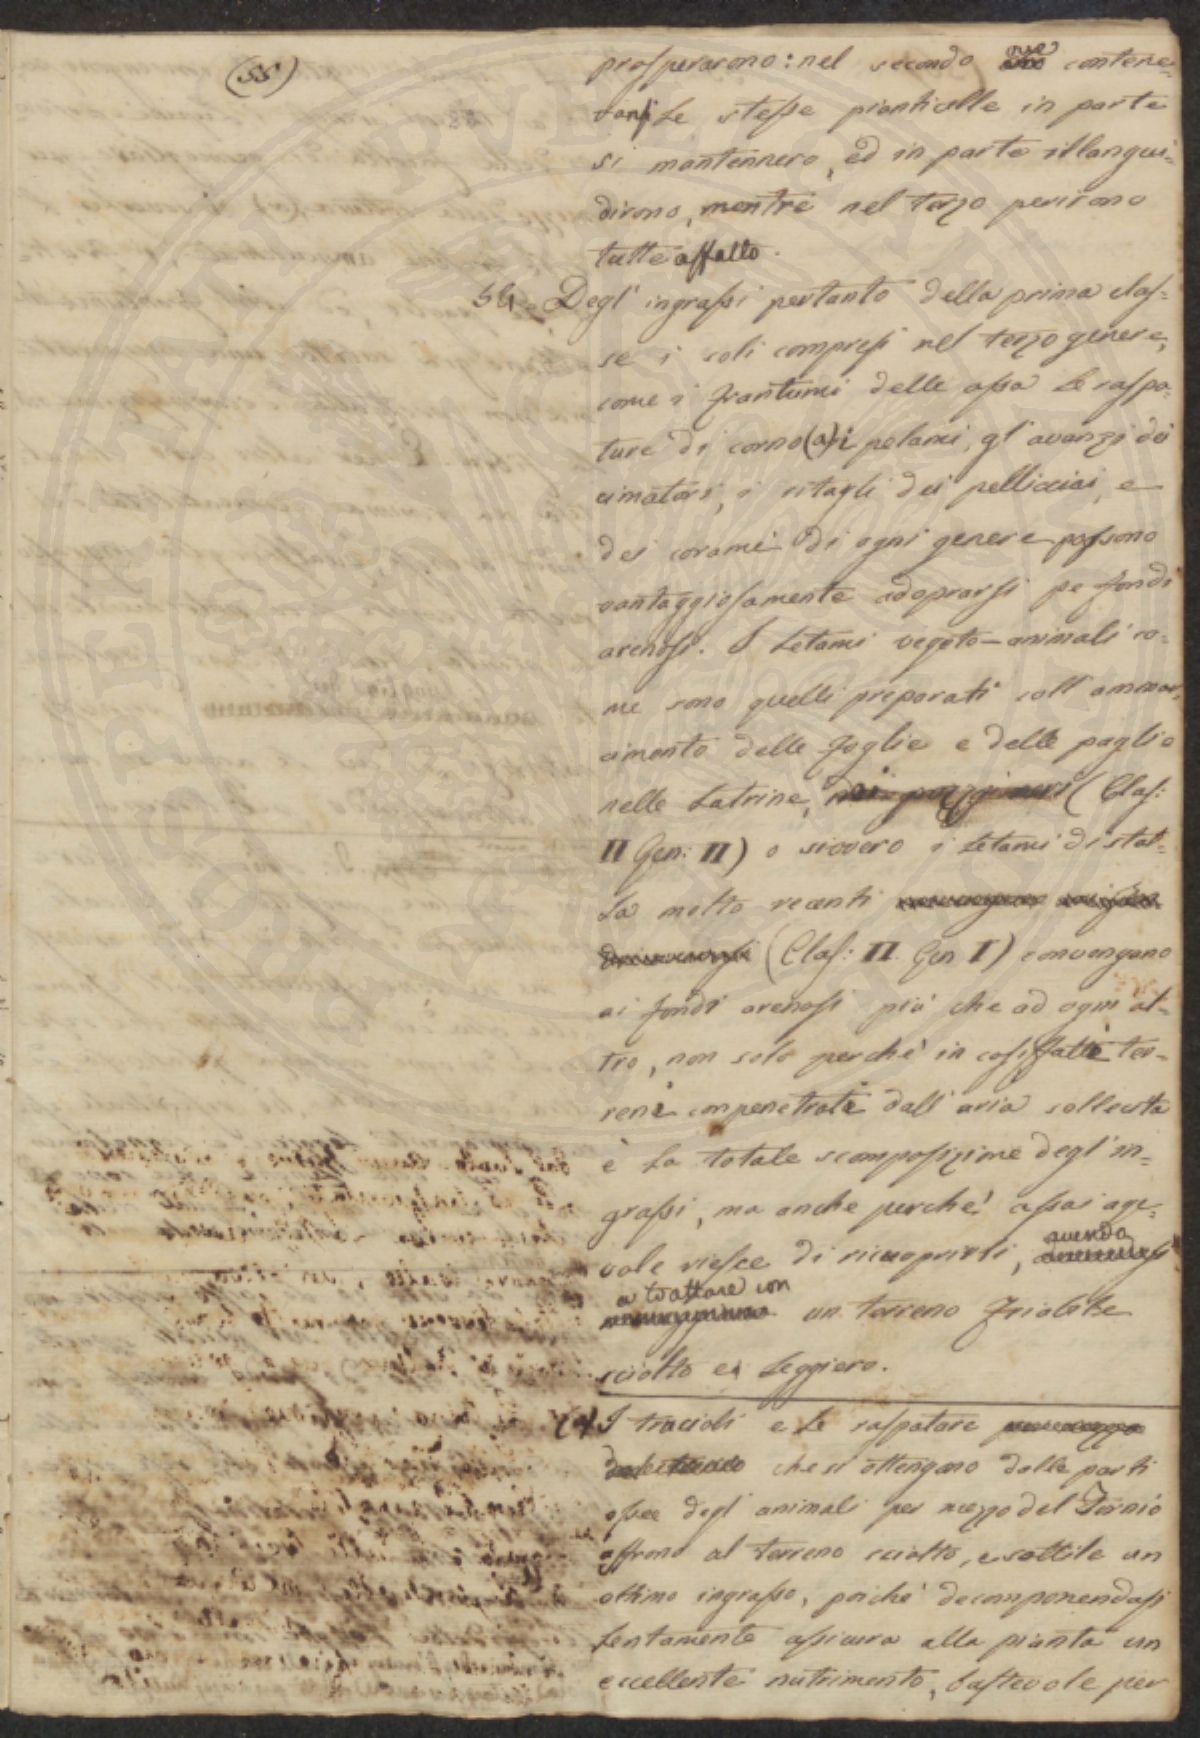 (55)
prosperarono: nel secondo ove contene=
vansi Le stesse pianticelle in parte
si mantennero, ed in parte illangui=
dirono, mentre nel terzo perirono
tutte affatto.
54 = Degl' ingrassi pertanto della prima clas=
se i soli compresi nel terzo genere,
come i frantumi delle ossa Le raspa=
ture di corno (a) i pelami, gl' avanzi dei
cimatori, i ritagli dei pellicciai, e
dei corami di ogni genere possono
vantaggiosamente adoprarsi pe fondi
arenosi. I Letami vegeto-animali co=
me sono quelli preparati coll' ammar=
cimento delle foglie e delle paglie
nelle Latrine, (Clas:
II Gen: II) o sivvero i Letami di stal=
La molto recenti
(Clas: II. Gen I) convengano
ai fondi arenosi più che ad ogni al=
tro, non solo perché in cosiffatti ter=
reni compenetrati dall' aria sollecita
è La totale scomposizione degl' in=
grassi, ma anche perché assai age=
vole riesce di ricuoprirli, avendo
a trattare con
un terreno friabile
sciolto e Leggiero.
(a) I trucioli e Le raspature
che si ottengano dalle parti
ossee degl' animali per mezzo del Tornio
offrono al terreno sciolto, e sottile un
ottimo ingrasso, poiché decomponendosi
Lentamente assicura alla pianta un
eccellente nutrimento, bastevole per